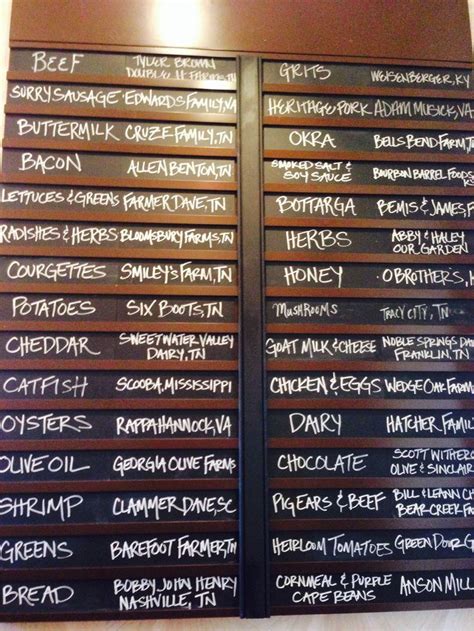 BEEF TYLER BROWN
DOUBLE H FARMS, TN
SURRY SAUSAGE EDWARDS FAMILY, VA
BUTTERMILK CRUZE FAMILY, TN
BACON ALLEN BENTON, TN
LETTUCES & GREENS FARMER DAVE, TN
RADISHES & HERBS BLOOMSBURY FARMS, TN
COURGETTES SMILEY'S FARM, TN
POTATOES SIX BOOTS, TN
CHEDDAR SWEETWATER VALLEY
DAIRY, TN
CATFISH SCOOBA, MISSISSIPPI
OYSTERS RAPPAHANNOCK, VA
OLIVE OIL GEORGIA OLIVE FARMS
SHRIMP CLAMMER DAVE, SC
GREENS BAREFOOT FARMER, TN
BREAD BOBBY JOHN HENRY
NASHVILLE, TN
GRITS WEISENBERGER, KY
HERITAGE PORK ADAM MUSICK, VA
OKRA BELLS BEND FARM, TN
SMOKED SALT &
SOY SAUCE BOURBON BARREL FOODS
KY
BOTTARGA BEMIS & JAMES, F
HERBS ABBY & HALEY
OUR GARDEN
HONEY O BROTHER'S,
MUSHROOMS TRACY CITY, TN
GOAT MILK & CHEESE NOBLE SPRINGS DA
FRANKLIN, TN
CHICKEN & EGGS WEDGE OAK FARM
DAIRY HATCHER FAMI
CHOCOLATE SCOTT WITHERO
OLIVE & SINCLAIR
PIG EARS & BEEF BILL & LEANN C
BEAR CREEK FAR
HEIRLOOM TOMATOES GREEN DOOR G
CORNMEAL & PURPLE
CAPE BEANS ANSON MILL